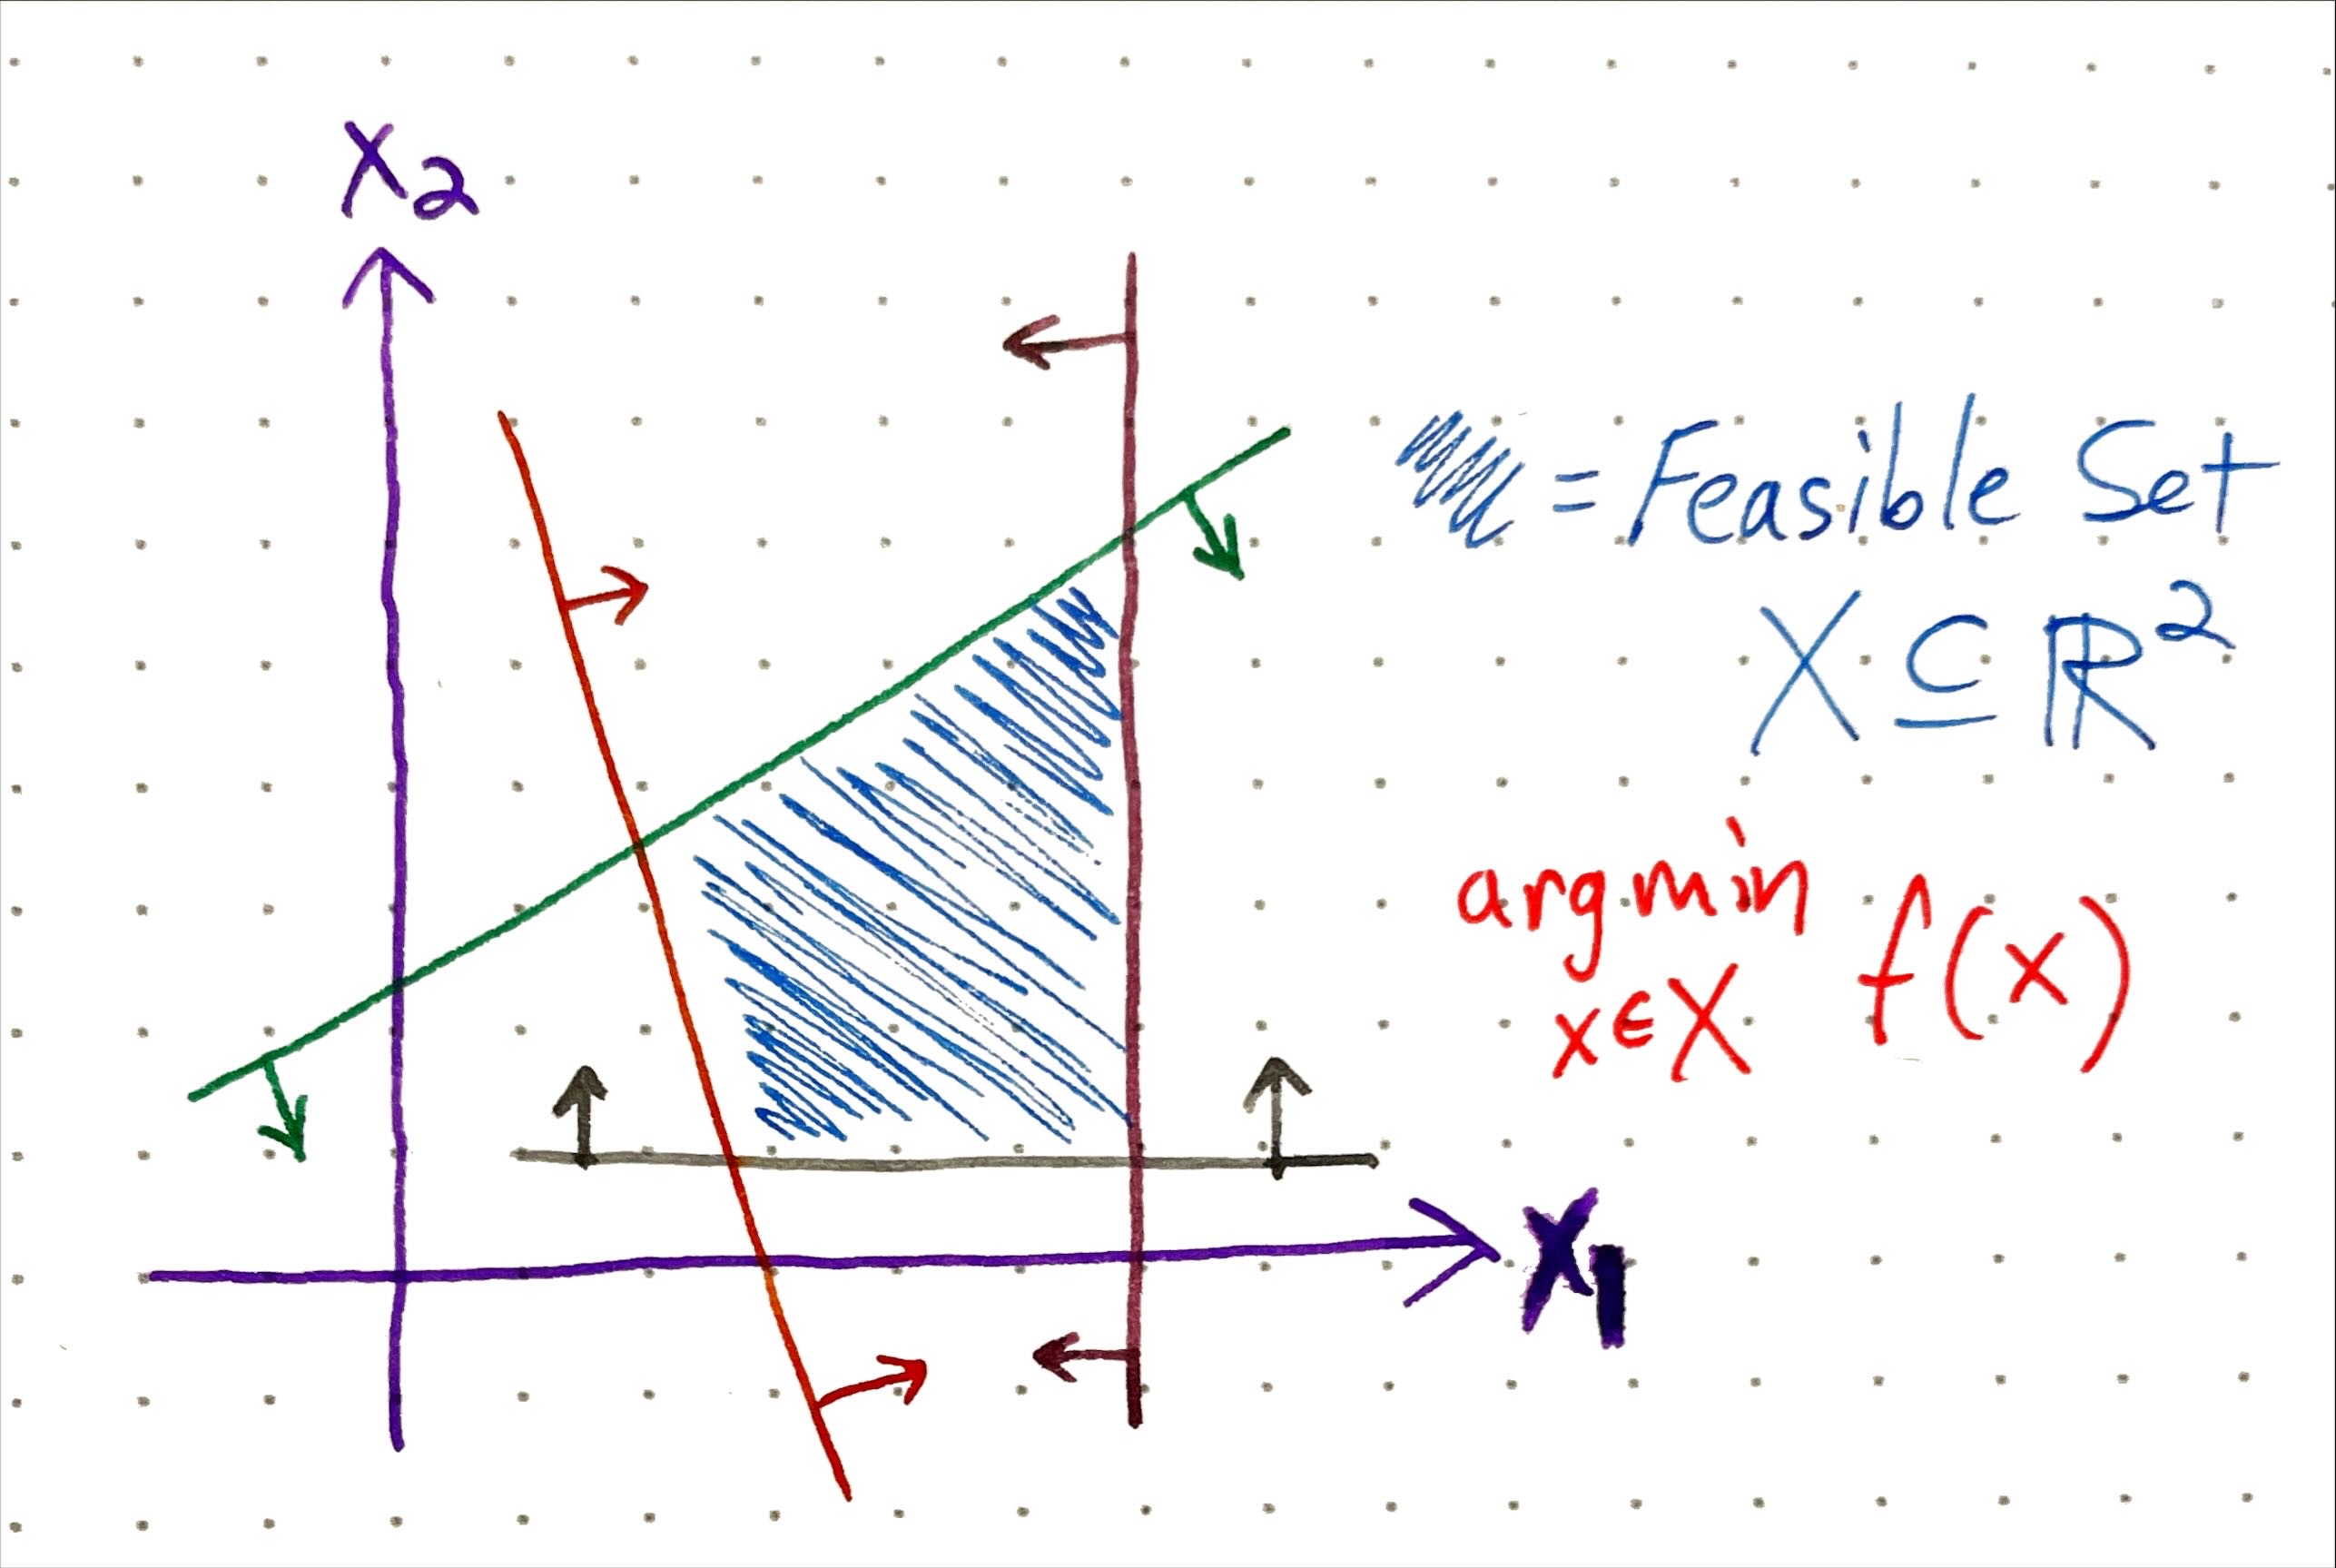 x₂
= Feasible Set
X ⊆ ℝ²
argmin f(x)
x∈X
x₁